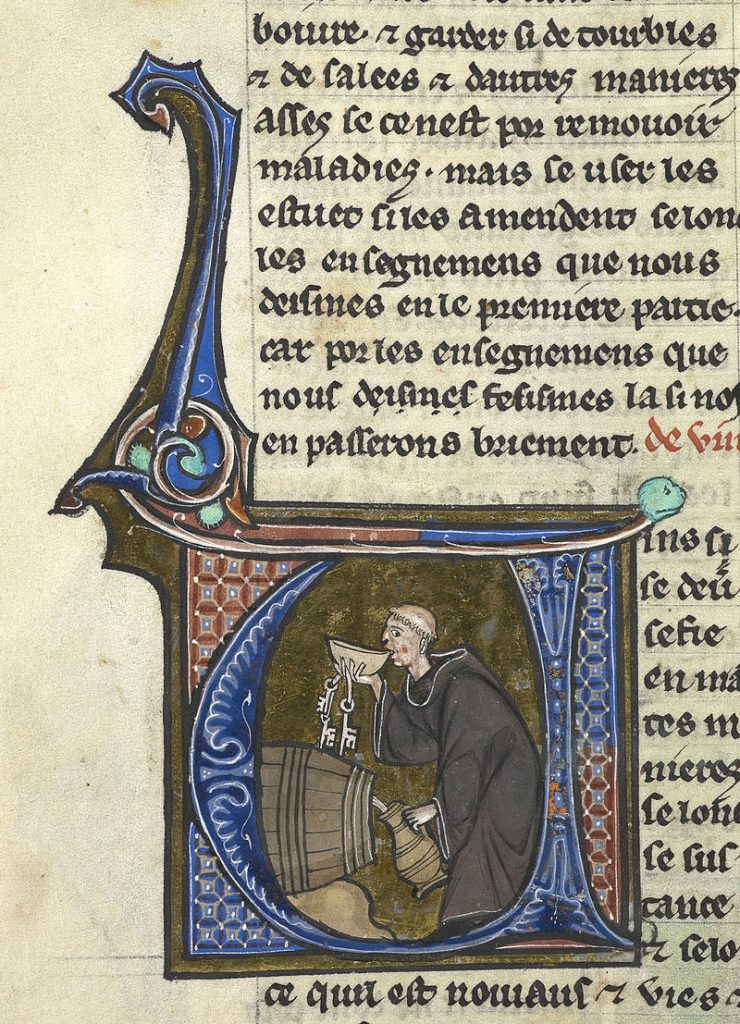 boivre. ⁊ garder si de tourbles
⁊ de salees ⁊ dautres manieres
asses se ce nest por remouoir
maladies. mais se user les
estuet si les amendent selonc
les ensegnemens que nous
desimes en le premiere partie.
car por les ensegnemens que
nous desimes fesismes la si no
en passerons briement. de vin
ins si
se deu
sefie
en ma
tes m
nieres
se lonc
se sus
tance
⁊ selo
ce quil est nouiaus ⁊ vies ⁊